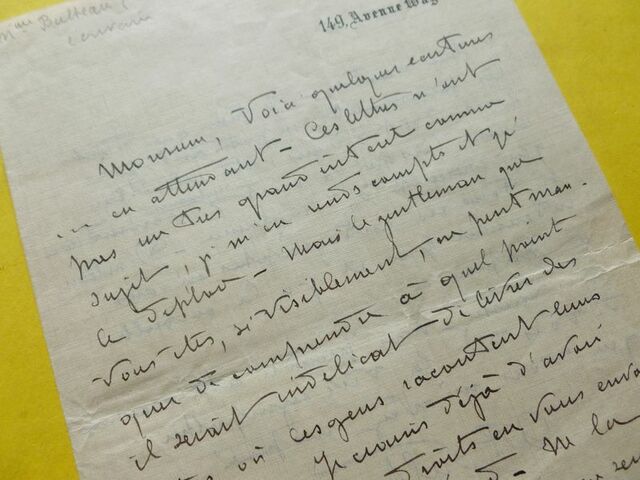 Mme Bulteau
écrivain
149, Avenue Wag
Monsieur, Voici quelques écritures
... en attendant – Ces lettres n'ont
pas un très grand intérêt comme
sujet, je m'en rends compte et je
le déplore – Mais le gentleman que
vous êtes, si visiblement, ne peut man-
quer de comprendre à quel point
il serait indélicat de livrer des
où ces gens racontent leurs
Je crains déjà d'avoir
droits en vous envo
M la